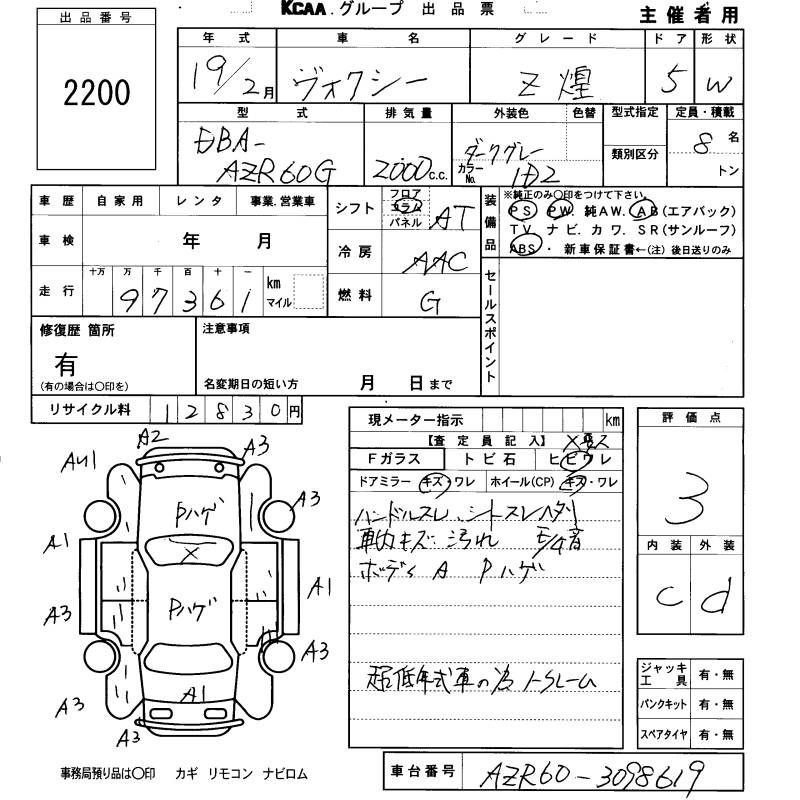 KCAA.グループ 出品票
主催者用
出品番号
2200
年式 車名 グレード ドア 形状
19/2月 ヴォクシー Z煌 5 W
型式 排気量 外装色 色替 型式指定 定員・積載
DBA-
AZR60G 2000c.c. ダークグレー カラーNo. 1D2 類別区分 8名 トン
車歴 自家用 レンタ 事業.営業車
車検 年 月
走行 十万 万 千 百 十 一
97361 km マイル
シフト フロア コラム パネル AT
冷房 AAC
燃料 G
装備品
※純正のみ〇印をつけて下さい。
PS PW. 純AW. AB(エアバック)
TV. ナビ. カワ. SR(サンルーフ)
ABS ・ 新車保証書←(注) 後日送りのみ
セールスポイント
修復歴 箇所
有
(有の場合は〇印を)
注意事項
名変期日の短い方 月 日まで
リサイクル料 12830円
現メーター指示 km
【査定員記入】
Fガラス トビ石 ヒビワレ
ドアミラー キズ・ワレ ホイール(CP) キズ・ワレ
ハンドルスレ、シートスレヘタリ
車内キズ 汚れ
ボディ A Pハゲ
超低年式車の為 トクレーム
評価点
3
内装 外装
C d
ジャッキ工具 有・無
パンクキット 有・無
スペアタイヤ 有・無
A2
A3
AU1
Pハゲ
A3
A1
X
A1
Pハゲ
A3
A3
A1
A3
A3
A3
事務局預り品は〇印 カギ リモコン ナビロム
車台番号 AZR60-3098619